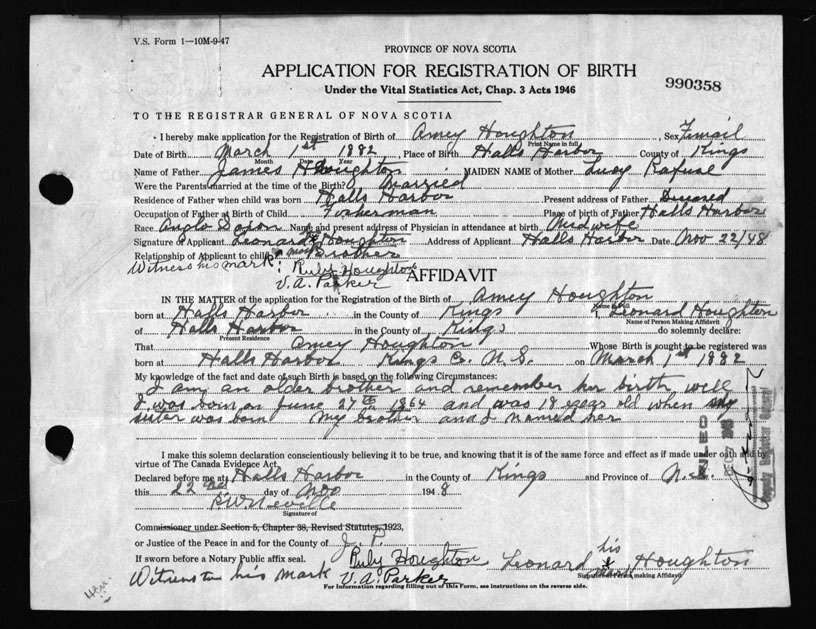 V.S. Form 1—10M-9-47
PROVINCE OF NOVA SCOTIA
APPLICATION FOR REGISTRATION OF BIRTH
990358
Under the Vital Statistics Act, Chap. 3 Acts 1946
TO THE REGISTRAR GENERAL OF NOVA SCOTIA
I hereby make application for the Registration of Birth of Amey Houghton, Sex Femail
Print Name in full
Date of Birth March 1st 1882, Place of Birth Halls Harbor County of Kings
Month Date Year
Name of Father James Houghton MAIDEN NAME of Mother Lucy Rafuse
Were the Parents married at the time of the Birth? Married
Residence of Father when child was born Halls Harbor Present address of Father Deceased
Occupation of Father at Birth of Child Fisherman Place of birth of Father Halls Harbor
Race Anglo Saxon Name and present address of Physician in attendance at birth Midwife
Signature of Applicant Leonard Houghton Address of Applicant Halls Harbor Date Nov 22/48
Relationship of Applicant to child Brother
Witness his mark: Ruby Houghton
V. A. Parker
AFFIDAVIT
IN THE MATTER of the application for the Registration of the Birth of Amey Houghton
born at Halls Harbor in the County of Kings I, Leonard Houghton
Name of Person Making Affidavit
of Halls Harbor in the County of Kings do solemnly declare:
Present Residence
That Amey Houghton Whose Birth is sought to be registered was
born at Halls Harbor Kings Co. N.S. on March 1st 1882
My knowledge of the fact and date of such Birth is based on the following Circumstances:
I am an older brother and remember her birth well
I was born on June 27th 1864 and was 18 year old when my
sister was born My brother and I named her
I make this solemn declaration conscientiously believing it to be true, and knowing that it is of the same force and effect as if made under oath and by
virtue of The Canada Evidence Act.
Declared before me at Halls Harbor in the County of Kings and Province of N.S.
this 22nd day of Nov 1948
R W Neville
Signature of
Commissioner under Section 5, Chapter 38, Revised Statutes, 1923,
or Justice of the Peace in and for the County of J. P.
If sworn before a Notary Public affix seal. Ruby Houghton Leonard his x mark Houghton
Signature of Person making Affidavit
Witness to his mark V. A. Parker
For Information regarding filling out of this Form, see instructions on the reverse side.
FILED
DEC
Deputy Registrar General